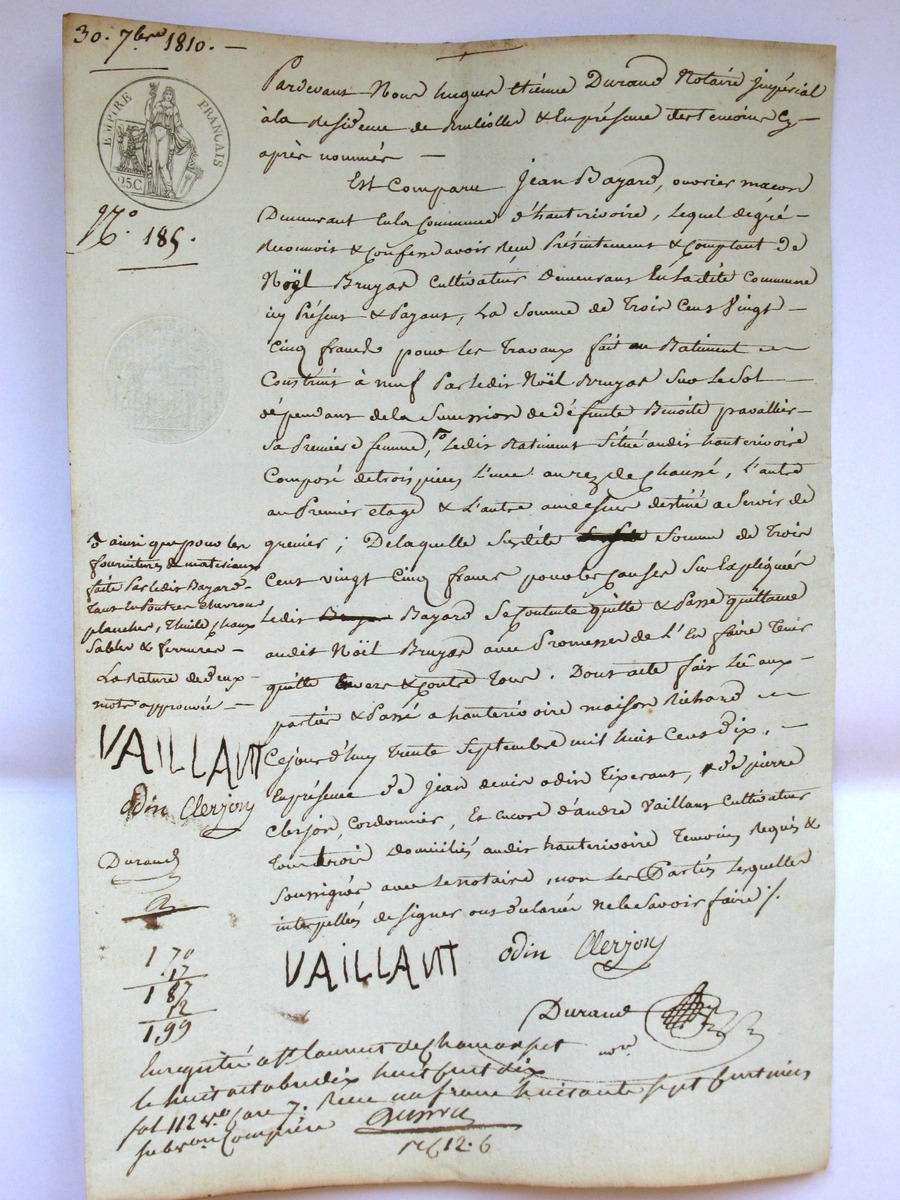 30. 7bre 1810. —
EMPIRE FRANÇAIS
25C.
No. 185.
Pardevant Nous hugues étienne Durand Notaire Impérial
à la Residence de Brulliolle & En présence des temoins Cy-
après nommés —
Est Comparu Jean Bayard, ouvrier maçon
Demeurant En la Commune d'hauterivoire, lequel de gré
Reconnoit & Confesse avoir Reçu Présentement & Comptant de
Noël Bruyas Cultivateur Demeurant En La dite Commune
icy Présent & Payant, La Somme de Trois Cent Vingt —
Cinq francs pour les Travaux fait au Batiment —
Construit à neuf Par ledit Noël Bruyas Sur Le Sol
dépendant de la Succession de défunte Benoite pravallier
Sa Premiere femme, Ledit Batiment Situé audit hauterivoire
Composé de trois pieces L'une au rez de Chaussé, L'autre
au Premier etage & L'autre au destiné a Servir de
grenier; De laquelle Susdite Somme de Trois
Cent vingt Cinq francs pour les Causes Sus Expliquées
Ledit Bayard Se Contente quitte & Passe quittance
audit Noël Bruyas avec Promesse de L'En faire Tenir
quitte Envers & Contre Tous. Dont acte fait Lû aux
parties & Passé a hauterivoire maison Richard —
Cejourd'huy Trente Septembre mil huit Cent dix, —
En présence de Jean denis odin Tixerant, de pierre
Clerjon, Cordonnier, Et encore d'andré Vaillant Cultivateur
Tous trois Domiciliés audit hauterivoire Temoins Requis &
Soussignés avec Le notaire, non Les Parties Lesquelles
interpellées de signer ont déclarée ne le Savoir faire /.
ainsi que pour les
fournitures de materiaux
faite Par ledit Bayard
Tant En Poutres chevrons
plancher, Thuile, chaux
Sables & ferrures —
La Rature de deux
mots approuvée —
VAILLANT
odin Clerjon
Durand
1 70
.17
1 87
12
1,99
VAILLANT odin Clerjon
Durand
nore
Enregistré a St Laurent de Chamousset
le huit octobre dix huit cent dix
fol 112 vo Case 7. Recu un franc huitante sept centimes
Subvon Comprise